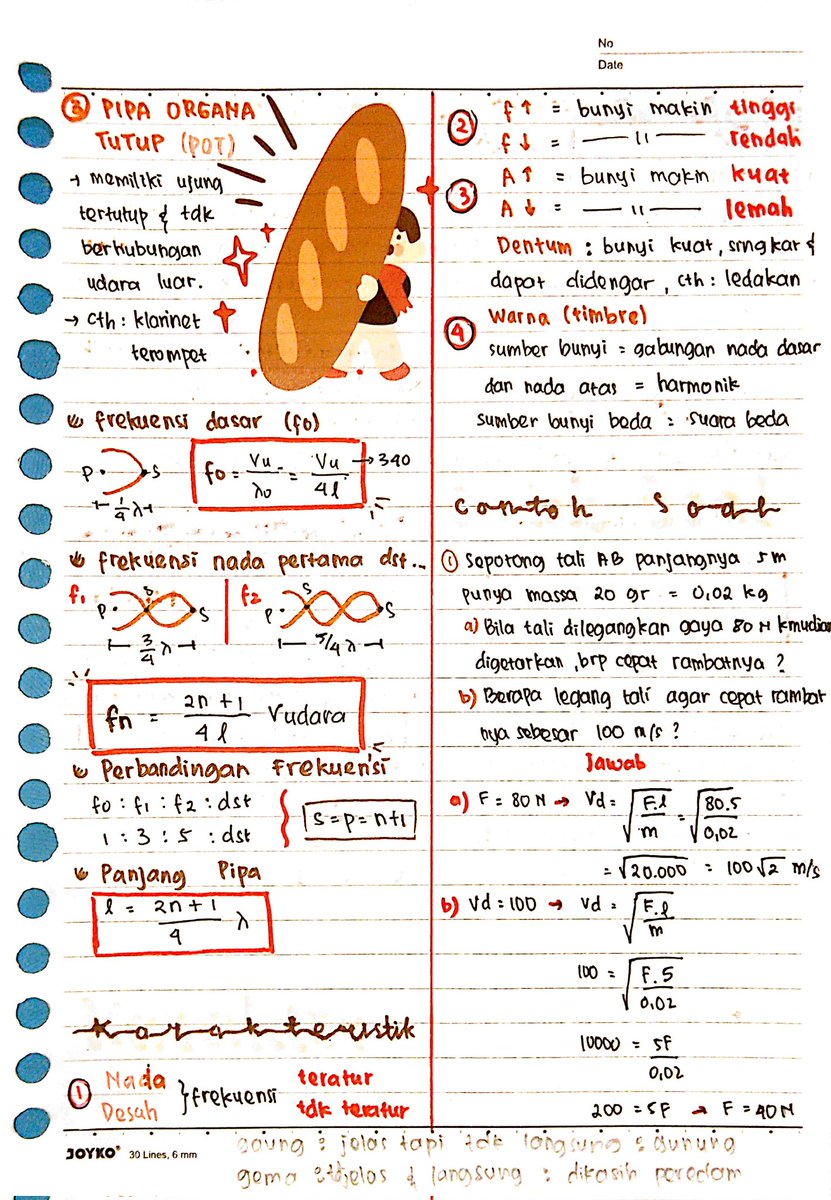 No
Date
③ PIPA ORGANA
TUTUP (POT)
→ memiliki ujung
tertutup & tdk
berhubungan
udara luar.
→ cth : klarinet
terompet
frekuensi dasar (fo)
P S
¼ λ
fo = Vu / λo = Vu / 4l → 340
frekuensi nada pertama dst...
f₁ P S S f₂ P S S
3/4 λ 5/4 λ
fn = 2n+1 / 4l Vudara
Perbandingan Frekuensi
fo : f₁ : f₂ : dst
1 : 3 : 5 : dst
S = P = n+1
Panjang Pipa
l = 2n+1 / 4 λ
Karakteristik
① Nada } frekuensi teratur
Desah tdk teratur
② f↑ = bunyi makin tinggi
f↓ = —— 11 —— rendah
③ A↑ = bunyi makin kuat
A↓ = —— 11 —— lemah
Dentum : bunyi kuat, singkat &
dapat didengar, cth : ledakan
④ Warna (timbre)
sumber bunyi = gabungan nada dasar
dan nada atas = harmonik
sumber bunyi beda : suara beda
contoh Soal
① Sepotong tali AB panjangnya 5m
punya massa 20 gr = 0,02 kg
a) Bila tali dilegangkan gaya 80 N kmudian
digetarkan, brp cepat rambatnya ?
b) Berapa legang tali agar cepat rambat
nya sebesar 100 m/s ?
Jawab
a) F = 80 N → Vd = √(F.l / m) = √(80.5 / 0,02)
= √20.000 = 100√2 m/s
b) Vd = 100 → Vd = √(F.l / m)
100 = √(F.5 / 0,02)
10000 = 5F / 0,02
200 = 5F → F = 40 N
JOYKO® 30 Lines, 6 mm
gaung : jelas tapi tdk langsung : gunung
gema : jelas & langsung : dikasih peredam